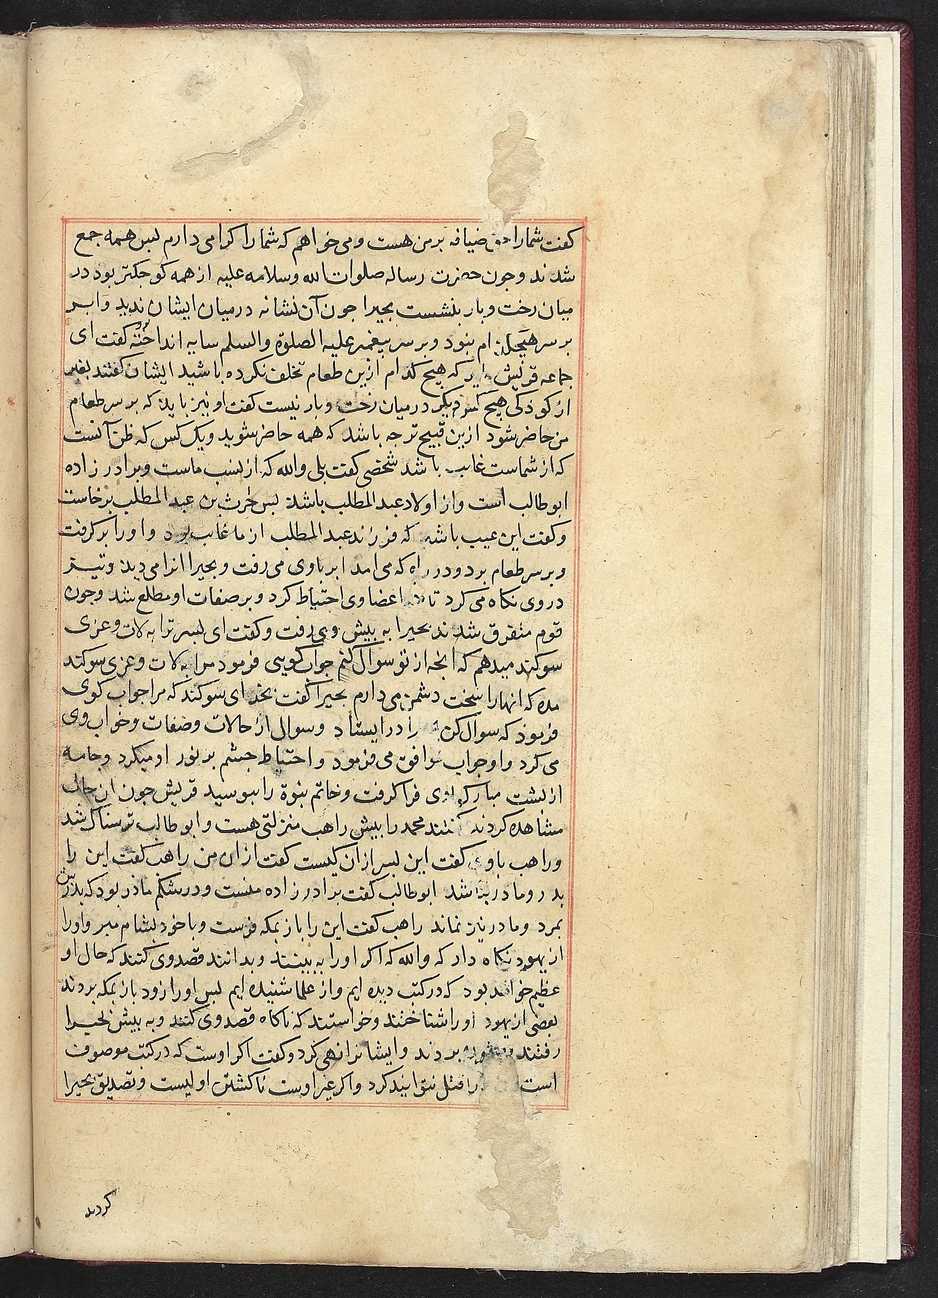 کفت شمارا حق ضیافة بر من هست و می خواهم که شما را کرامی دارم بس همه جمع
شدند و جون حضرت رسالة صلوات الله وسلامه علیه از همه کوجکتر بود در
میان رخت و بار بنشست بحیرا جون آن نشانه در میان ایشان ندید و ابر
بر سر هیچکدام نبود و بر سر بیغمبر علیه الصلوة والسلم سایه انداخته بود کفت ای
جماعة قریش باید که هیچ کدام ازین طعام تخلف نکرده باشید ایشان کفتند بغیر
از کودکی هیچ کس دیکر در میان رخت و بار نیست کفت او نیز باید که بر سر طعام
من حاضر شود ازین قبیح تر جه باشد که همه حاضر شوید و یک کس که ظن آنست
که از شماست غایب باشد شخصی کفت بلی والله که از نسب ماست و برادر زاده
ابو طالب است و از اولاد عبد المطلب باشد بس حرث بن عبد المطلب برخاست
و کفت این عیب باشد که فرزند عبد المطلب از ما غایب بود و او را بر کرفت
و بر سر طعام برد و در راه که می امد ابر با وی می رفت و بحیرا انرا می دید و تیز
در وی نکاه می کرد تا اعضا وی احتیاط کرد و بر صفات او مطلع شد و جون
قوم متفرق شدند بحیرا به بیش وی رفت و کفت ای بسر ترا به لات و عزی
سوکند میدهم که انجه از تو سوال کنم جواب کویی فرمود مرا به لات و عزی سوکند
مده که انها را سخت دشمن می دارم بحیرا کفت بخدای سوکند که مرا جواب کوی
فرمود که سوال کن را در ایستاد و سوال از حالات و صفات و خواب وی
می کرد و او جواب موافق می فرمود و احتیاط جشم بر نور او میکرد و جامه
از بشت مبارک وی فرا کرفت و خاتم نبوة را ببوسید قریش جون ان حال
مشاهده کردند کفتند محمد را بیش راهب منزلتی هست و ابو طالب ترسناک شد
و راهب با وی کفت این بسر از ان کیست کفت از ان من راهب کفت این را
بدر و مادر نباشد ابو طالب کفت برادر زاده منست و در شکم مادر بود که بدرش
بمرد و مادر نیز نماند راهب کفت این را باز بمکه فرست و با خود بشام مبر و او را
از یهود نکاه دار که والله که اکر او را به بینند و بدانند قصد وی کنند که حال او
عظیم خواهد بود که در کتب دیده ایم و از علما شنیده ایم بس او را زود باز بمکه بردند
بعضی از یهود او را شناختند و خواستند که ناکاه قصد وی کنند و به بیش بحیرا
رفتند بردند و ایشانرا نهی کرد و کفت اکر اوست که در کتب موصوف
است را قتل نتوانید کرد و اکر غیر اوست ناکشتن اولیست و تصدیق بحیرا
کردند